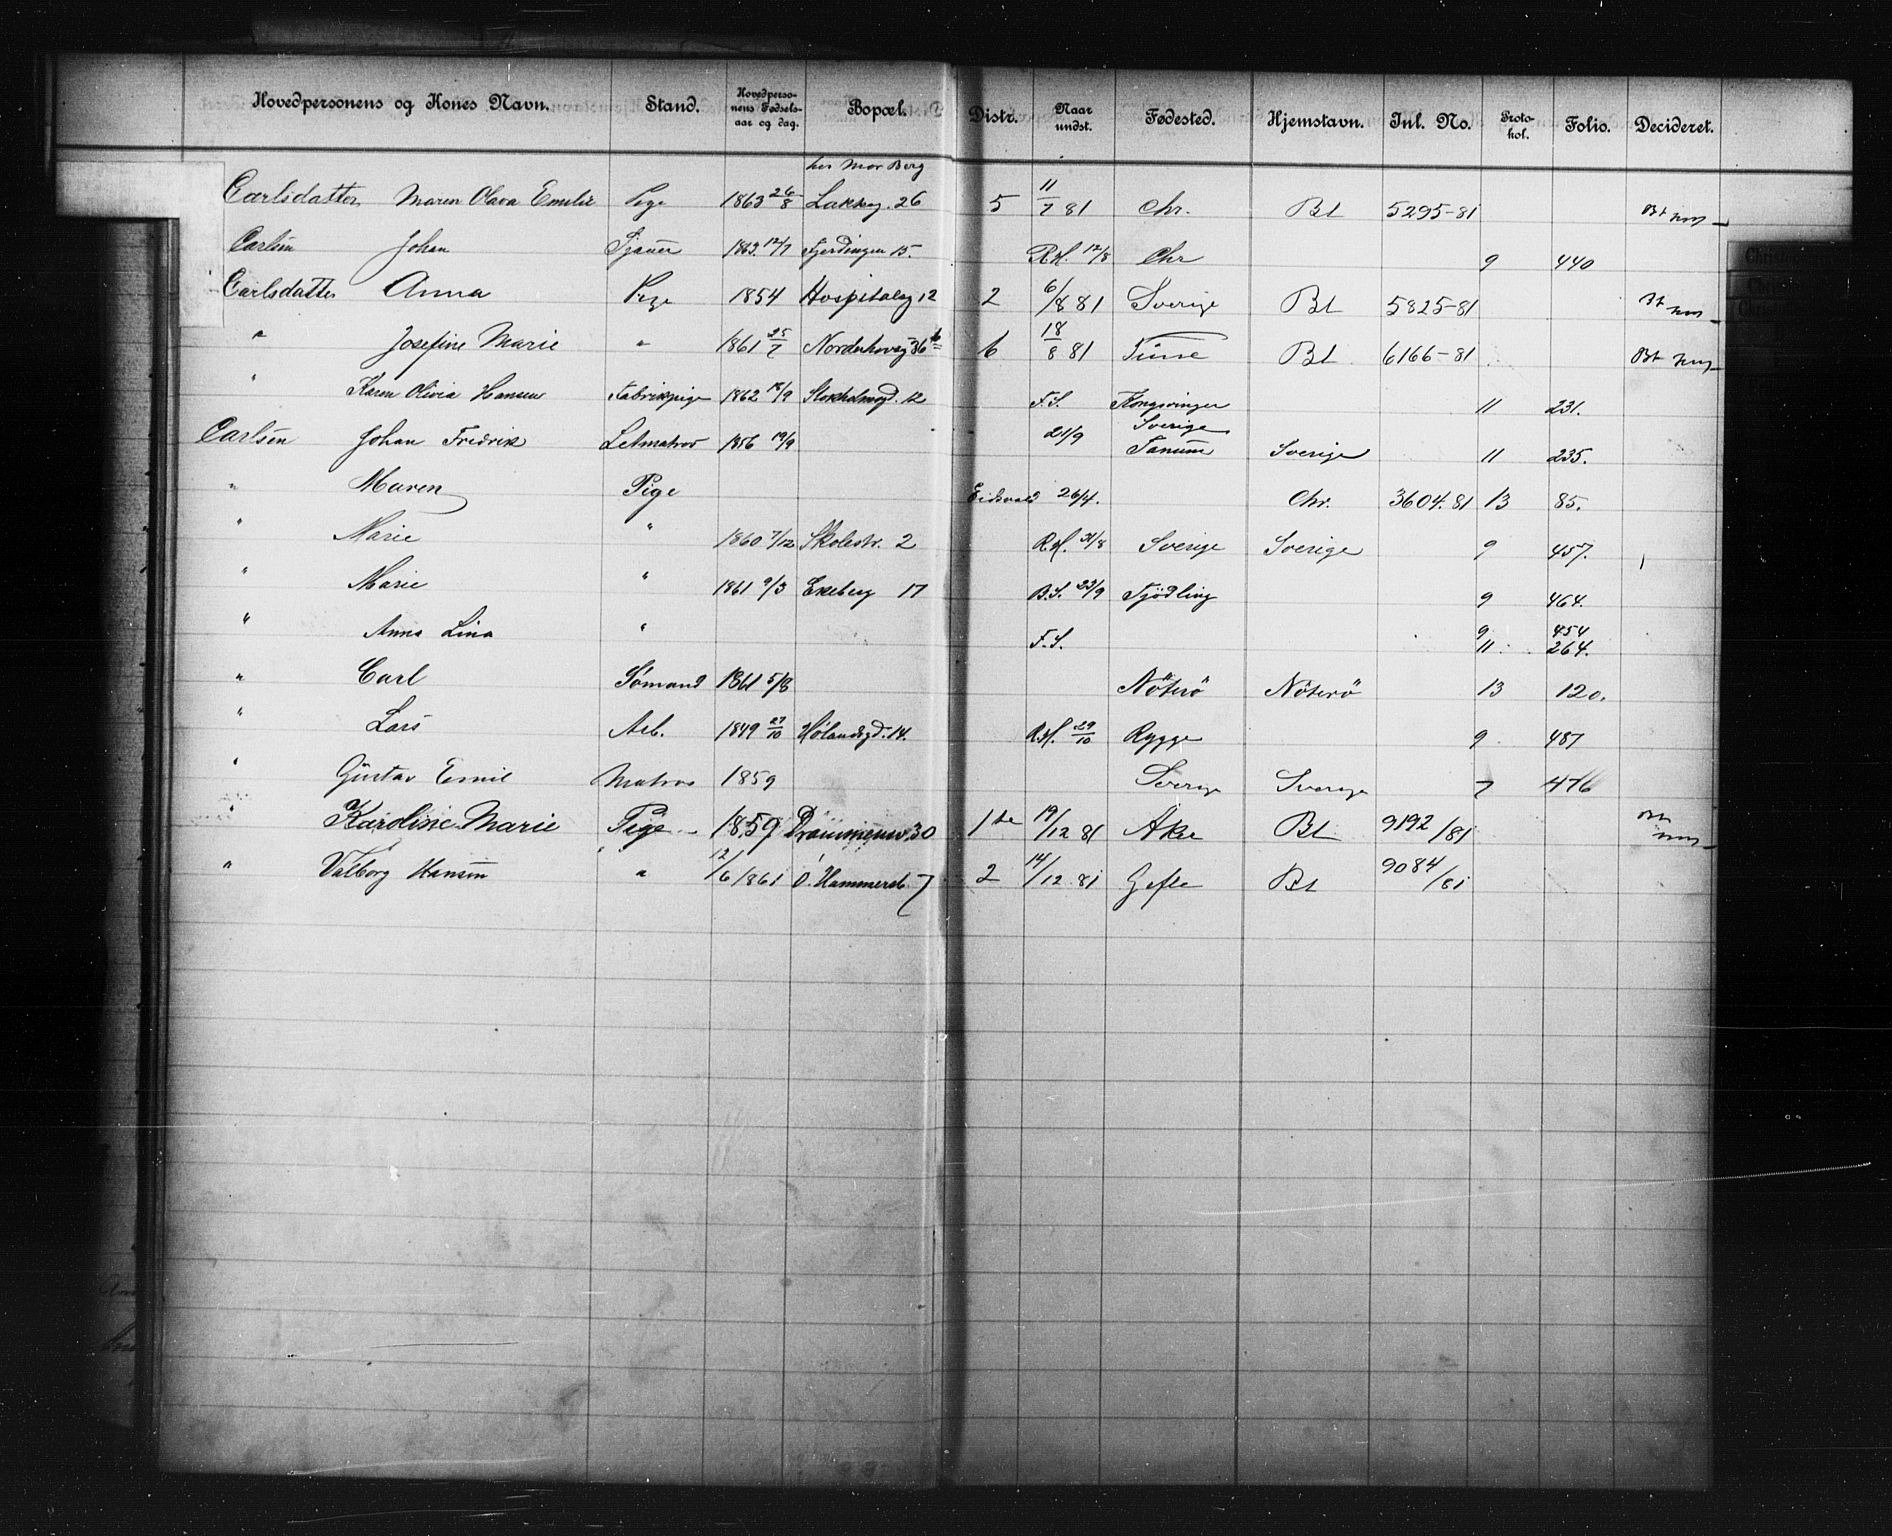 Hovedpersonens og Kones Navn. Stand. Hovedperso-nens Fødsels-aar og dag. Bopæl. Distr. Naar undst. Fødested. Hjemstavn. Inl. No. Proto-kol. Folio. Decideret.
hos Mor Berg
Carlsdatter Maren Olava Emilie Pige 1863 26/8 Lakkeg. 26 5 11/7 81 Chr. Bt 5295-81 Bt
Carlsen Johan Sjauer 1863 12/7 Fjerdingen 15. R.H. 12/8 Chr 9 440
Carlsdatter Anna Pige 1854 Hospitalsg 12 2 6/8 81 Sverige Bt 5825-81 Bt
" Josefine Marie " 1861 25/7 Norderhovsg 36 b 6 18/8 81 Tune Bt 6166-81 Bt
" Karen Olivia Hansen Fabrikpige 1862 18/9 Stokholmsgd. 12 F.S. Kongsvinger 11 231.
Carlsen Johan Fredrik Letmatros 1856 19/9 21/9 Sverige Tanum Sverige 11 235.
" Maren Pige Eidsvold 26/4. Chr. 3604.81 13 85.
" Marie " 1860 7/12 Skolestr. 2 R.H. 31/8 Sverige Sverige 9 457.
" Marie " 1861 9/3 Ekeberg 17 B.S. 23/9 Tjödling 9 464.
" Anna Lina " F.S. 9 454
11 264.
" Carl Sömand 1861 5/8 Nöterö Nöterö 13 120.
" Lars Arb. 1849 27/10 Hølandsgd. 14. R.H. 29/10 Rygge 9 487
" Gustav Emil Matros 1859 Sverige Sverige 7 476
" Karoline Marie Pige 1859 Drammensv. 30 1ste 19/12 81 Aker Bt 9192/81 Bt
" Valborg Hansen " 12/6 1861 Ö. Hammersb. 7 2 14/12 81 Gefle Bt 9084/81